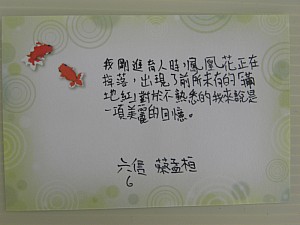 我剛進台人時，鳳凰花正在
掉落，出現了前所未有的「滿
地紅」對於不熟悉的我來說是
一項美麗的回憶。
六信 蔡孟桓
6